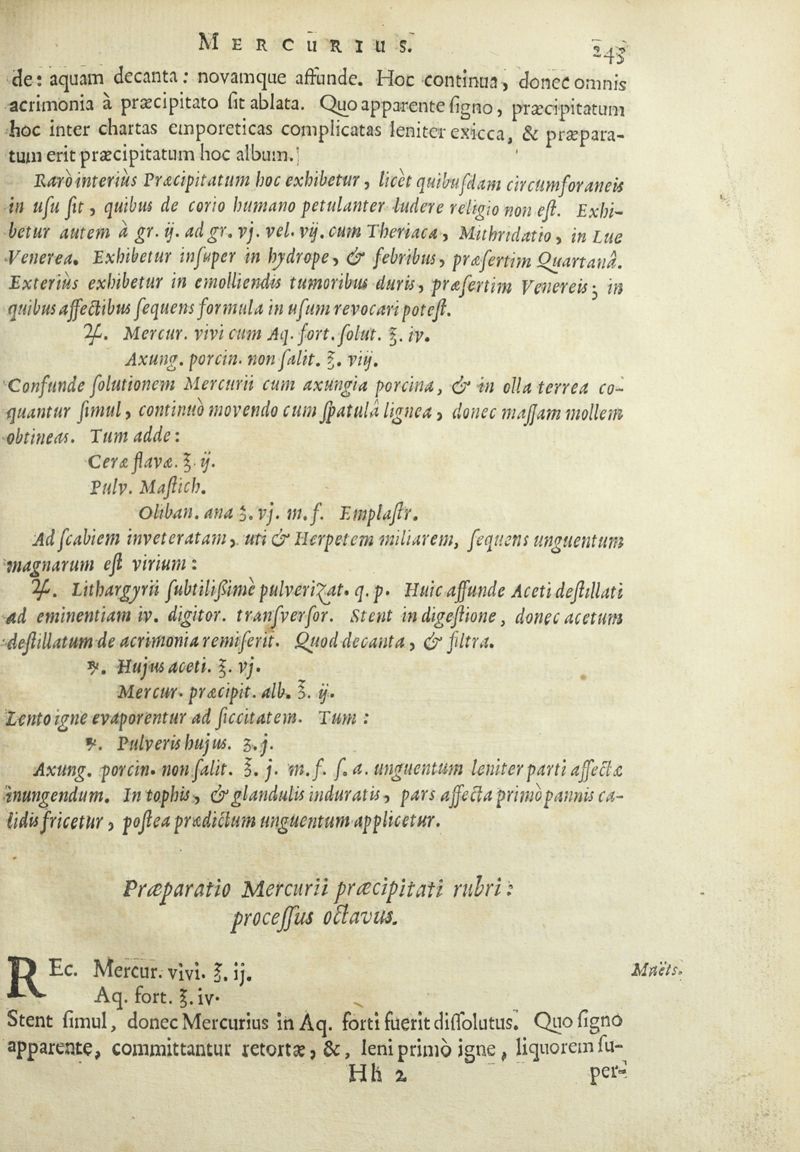 MERCURIUS.
243
de: aquam decanta: novamque affunde. Hoc continua, donec omnis
acrimonia à præcipitato sit ablata. Quo apparente signo, præcipitatum
hoc inter chartas emporeticas complicatas leniter exicca, & præpara-
tum erit præcipitatum hoc album.
Rarò interiùs Præcipitatum hoc exhibetur, licèt quibusdam circumforaneis
in usu sit, quibus de corio humano petulanter ludere religio non est. Exhi-
betur autem à gr. ij. ad gr. vj. vel. vij. cum Theriaca, Mithridatio, in Lue
Venerea. Exhibetur insuper in hydrope, & febribus, præsertim Quartanâ.
Exteriùs exhibetur in emolliendis tumoribus duris, præsertim Venereis; in
quibus affectibus sequens formula in usum revocari potest.
♃. Mercur. vivi cum Aq. fort. solut. ℥. iv.
Axung. porcin. non salit. ℥. viij.
Confunde solutionem Mercurii cum axungia porcina, & in olla terrea co-
quantur simul, continuò movendo cum spatulâ lignea, donec massam mollem
obtineas. Tum adde:
Ceræ flavæ. ℥. ij.
Pulv. Mastich.
Oliban. ana ʒ. vj. m. f. Emplastr.
Ad scabiem inveteratam, uti & Herpetem miliarem, sequens unguentum
magnarum est virium:
♃. Lithargyrii subtilissimè pulverizat. q. p. Huic affunde Aceti destillati
ad eminentiam iv. digitor. transversor. Stent in digestione, donec acetum
destillatum de acrimonia remiserit. Quod decanta, & filtra.
℞. Hujus aceti. ℥. vj.
Mercur. præcipit. alb. ʒ. ij.
Lento igne evaporentur ad siccitatem. Tum:
℞. Pulveris hujus. ʒ. j.
Axung. porcin. non salit. ℥. j. m. f. s. a. unguentum leniter parti affectæ
inungendum. In tophis, & glandulis induratis, pars affecta primò pannis ca-
lidis fricetur, postea prædictum unguentum applicetur.
Præparatio Mercurii præcipitati rubri:
processus octavus.
REc. Mercur. vivi. ℥. ij.
Mnëts.
Aq. fort. ℥. iv.
Stent simul, donec Mercurius in Aq. forti fuerit dissolutus. Quo signo
apparente, committantur retortæ, &, leni primò igne, liquorem su-
Hh 2
per-